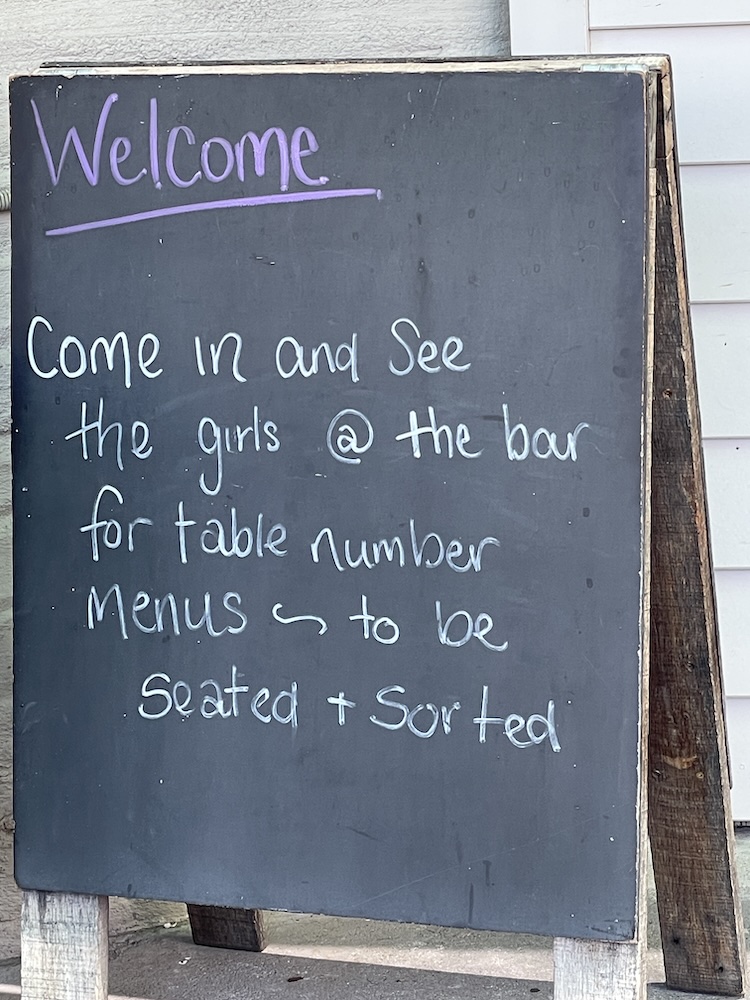 Welcome
Come in and See
the girls @ the bar
for table number
Menus ~ to be
Seated + Sorted